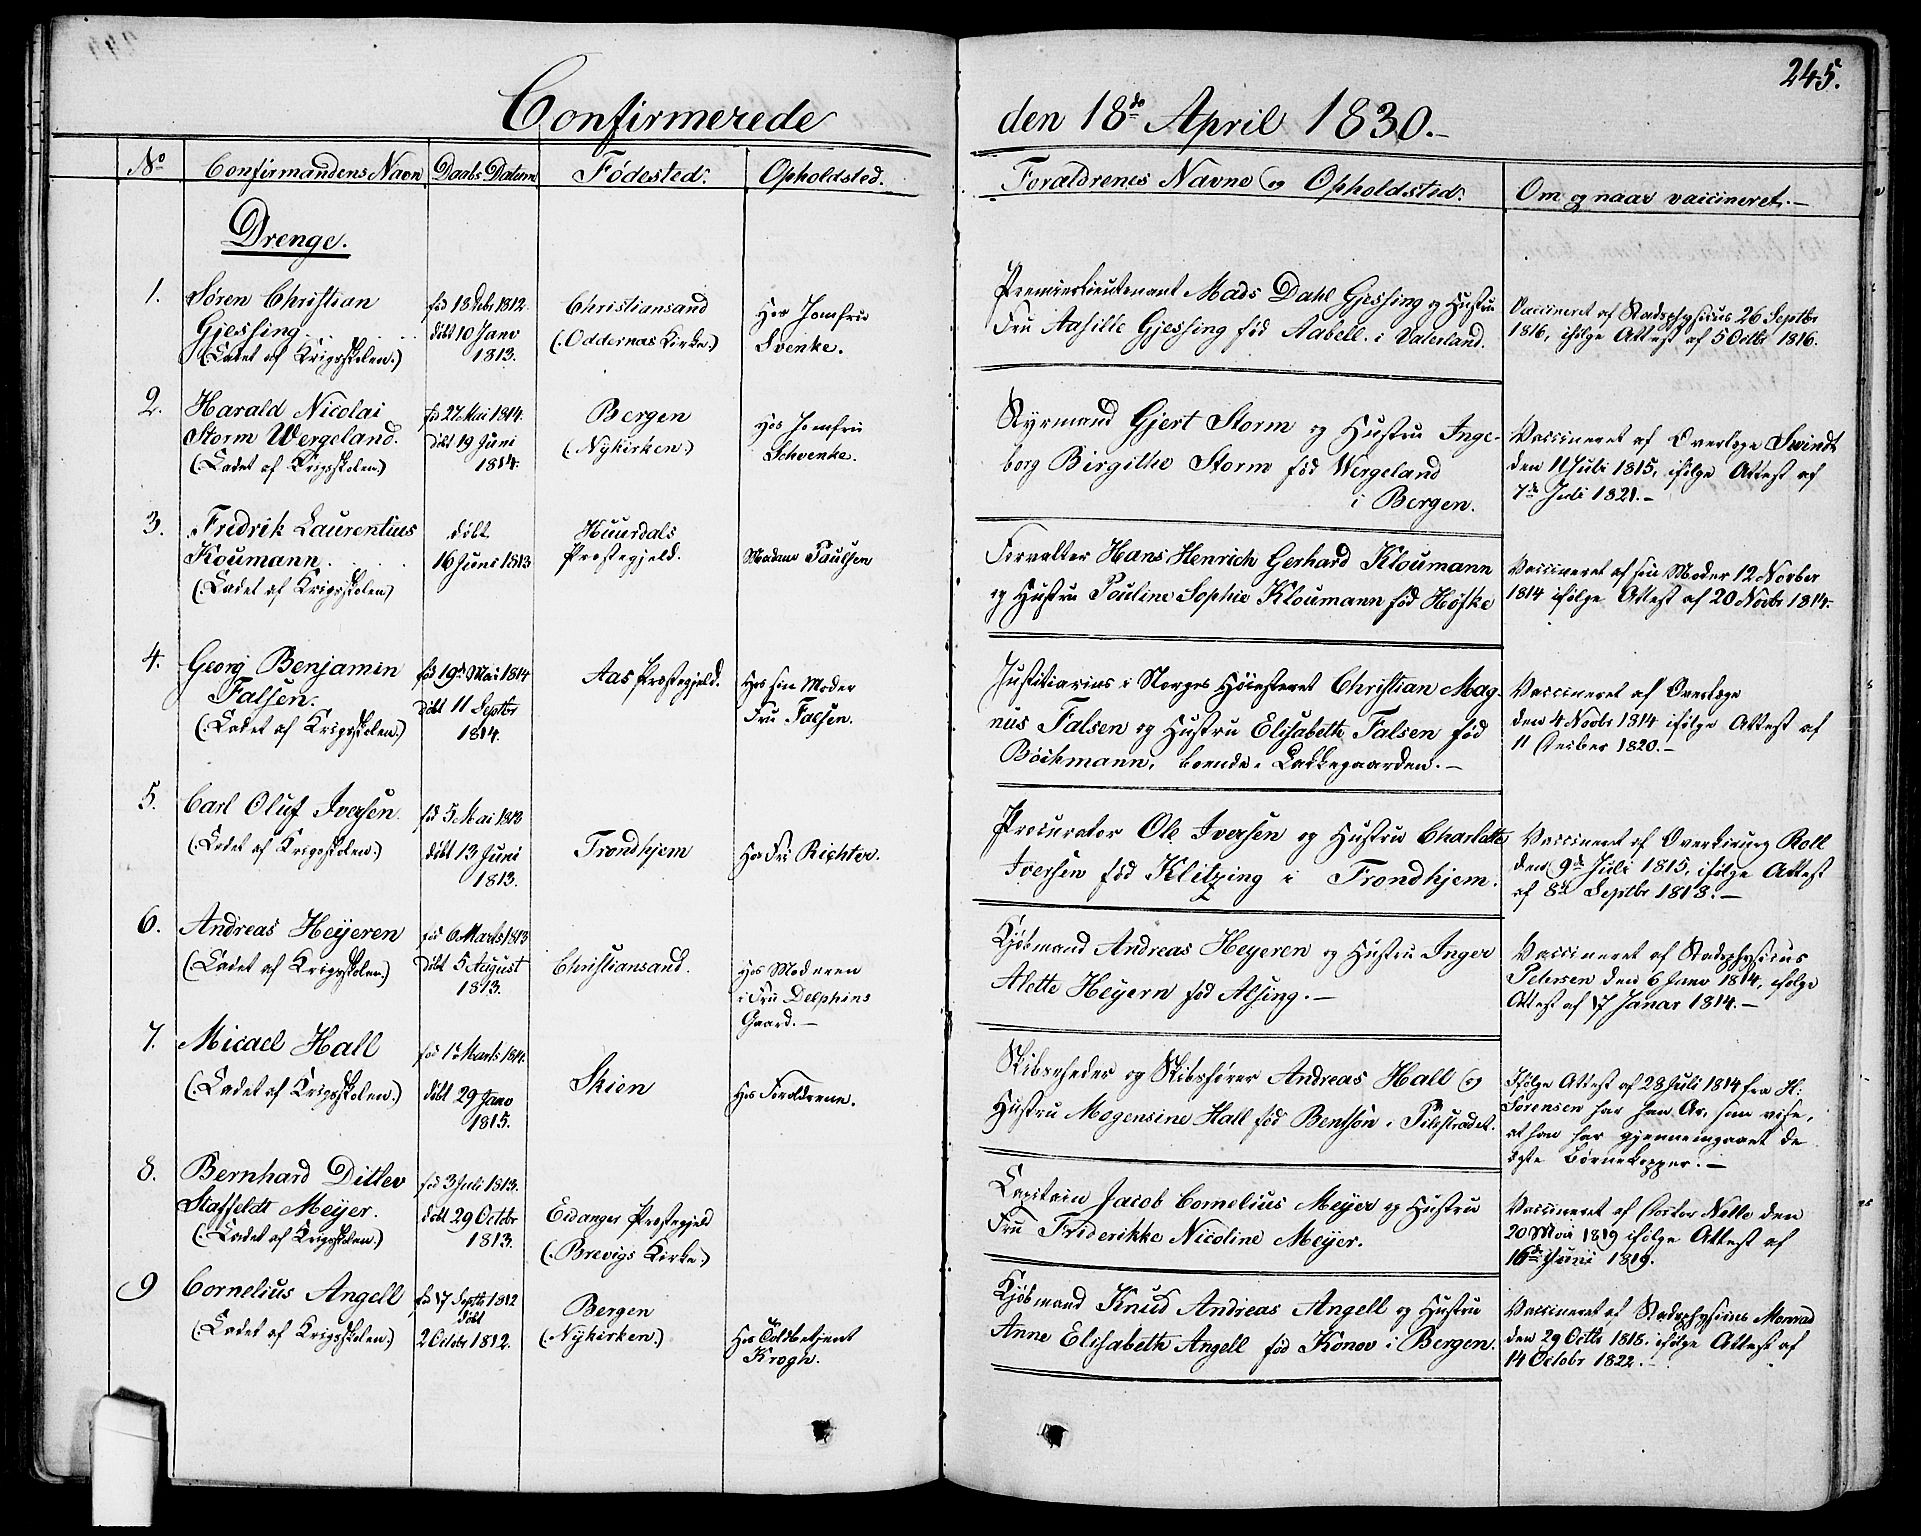 245.
Confirmerede den 18de April 1830.-
No Confirmandens Navn Daabs Datum Fødested. Opholdsted. Forældrenes Navne og Opholdsted. Om og naar vaccineret.-
Drenge.
1. Søren Christian
Gjessing.
(:Cadet af Krigsskolen:)
fød 18 Debr 1812.
døbt 10 Janv
1813.
Christiansand
(:Oddernæs Kirke:)
Hos Jomfru
Svenke.
Premierlieutenant Mads Dahl Gjessing og Hustru
Fru Aasille Gjessing fød Aabell. i Vaterland.
Vaccineret af Stadsphysicus 26 Septbr
1816, ifølge Attest af 5 Octbr 1816.
2. Harald Nicolai
Storm Wergeland.
(:Cadet af Krigsskolen:)
fød 27 Mai 1814.
døbt 19 Juni
1814.
Bergen
(:Nykirken:)
Hos Jomfru
Schvenke.
Styrmand Gjert Storm og Hustru Inge-
borg Birgithe Storm fød Wergeland
i Bergen.
Vaccineret af Overlæge Swindt
den 11 Juli 1815, ifølge Attest af
7de Juli 1821.-
3. Fredrik Laurentius
Koumann.
(:Cadet af Krigsskolen:)
døbt
16 Juni 1813
Huurdals
Præstegjeld.
Madame Paulsen
Forvalter Hans Henrich Gerhard Kloumann
og Hustru Pouline Sophie Kloumann fød Høfke
Vaccineret af sin Moder 12 Novber
1814 ifølge Attest af 20 Novbr 1814.
4. Georg Benjamin
Falsen.
(:Cadet af Krigsskolen:)
fød 19de Mai 1814
døbt 11 Septbr
1814.
Aas Præstegjeld.
Hos sin Moder
Fru Falsen.
Justitiarius i Norges Høiesteret Christian Mag-
nus Falsen og Hustru Elisabeth Falsen fød
Böckmann, boende i Lakkegaarden.-
Vaccineret af Overlæge
den 4 Novbr 1814 ifølge Attest af
11 1820.-
5. Carl Oluf Iversen.
(:Cadet af Krigsskolen:)
fød 5 Mai 1813
døbt 13 Juni
1813.
Trondhjem
Hos Fru Richter.
Procurator Ole Iversen og Hustru Charlotte
Iversen fød Klitzing i Trondhjem.
Vaccineret af Overkirurg Roll
den 9de Juli 1815, ifølge Attest
af 8de Septbr 1818.-
6. Andreas Heyeren
(:Cadet af Krigsskolen:)
fød 6 Marts 1813
døbt 5 August
1813.
Christiansand.
Hos Moderen
i Fru Delphins
Gaard.-
Kjøbmand Andreas Heyeren og Hustru Inger
Alette Heyern fød Alsing.-
Vaccineret af Stadsphysicus
Petersen den 6 Janv 1814, ifølge
Attest af 17 Januar 1814.-
7. Micael Hall
(:Cadet af Krigsskolen:)
fød 1te Marts 1814.
døbt 29 Janv
1815.
Skien
Hos Forældrene.
Skibsrheder og Skibsfører Andreas Hall og
Hustru Mogensine Hall fød Bentsøn i Pilestrædet.
Ifølge Attest af 28 Juli 1814 fra H:
Sørensen har han Ar, som vise,
at han har gjennemgaaet de
ægte Børnekopper.-
8. Bernhard Ditlev
Staffeldt Meyer.
(:Cadet af Krigsskolen:)
fød 3 Juli 1813.
døbt 29 Octbr
1813.
Eidanger Præstegjeld
(:Brevigs Kirke:)
Capitain Jacob Cornelius Meyer og Hustru
Fru Friderikke Nicoline Meyer.
Vaccineret af Doctor Nelle den
20 Mai 1819 ifølge Attest af
16de Juni 1819.
9 Cornelius Angell
(:Cadet af Krigsskolen:)
fød 17 Septbr 1812
døbt
2 Octobr 1812.
Bergen
(:Nykirken:)
Hos Toldbetjent
Krogh.
Kjøbmand Knud Andreas Angell og Hustru
Anne Elisabeth Angell fød Konov i Bergen.
Vaccineret af Stadsphysicus Monrad
den 29 Octbr 1818. ifølge Attest af
14 Octobr 1822.-